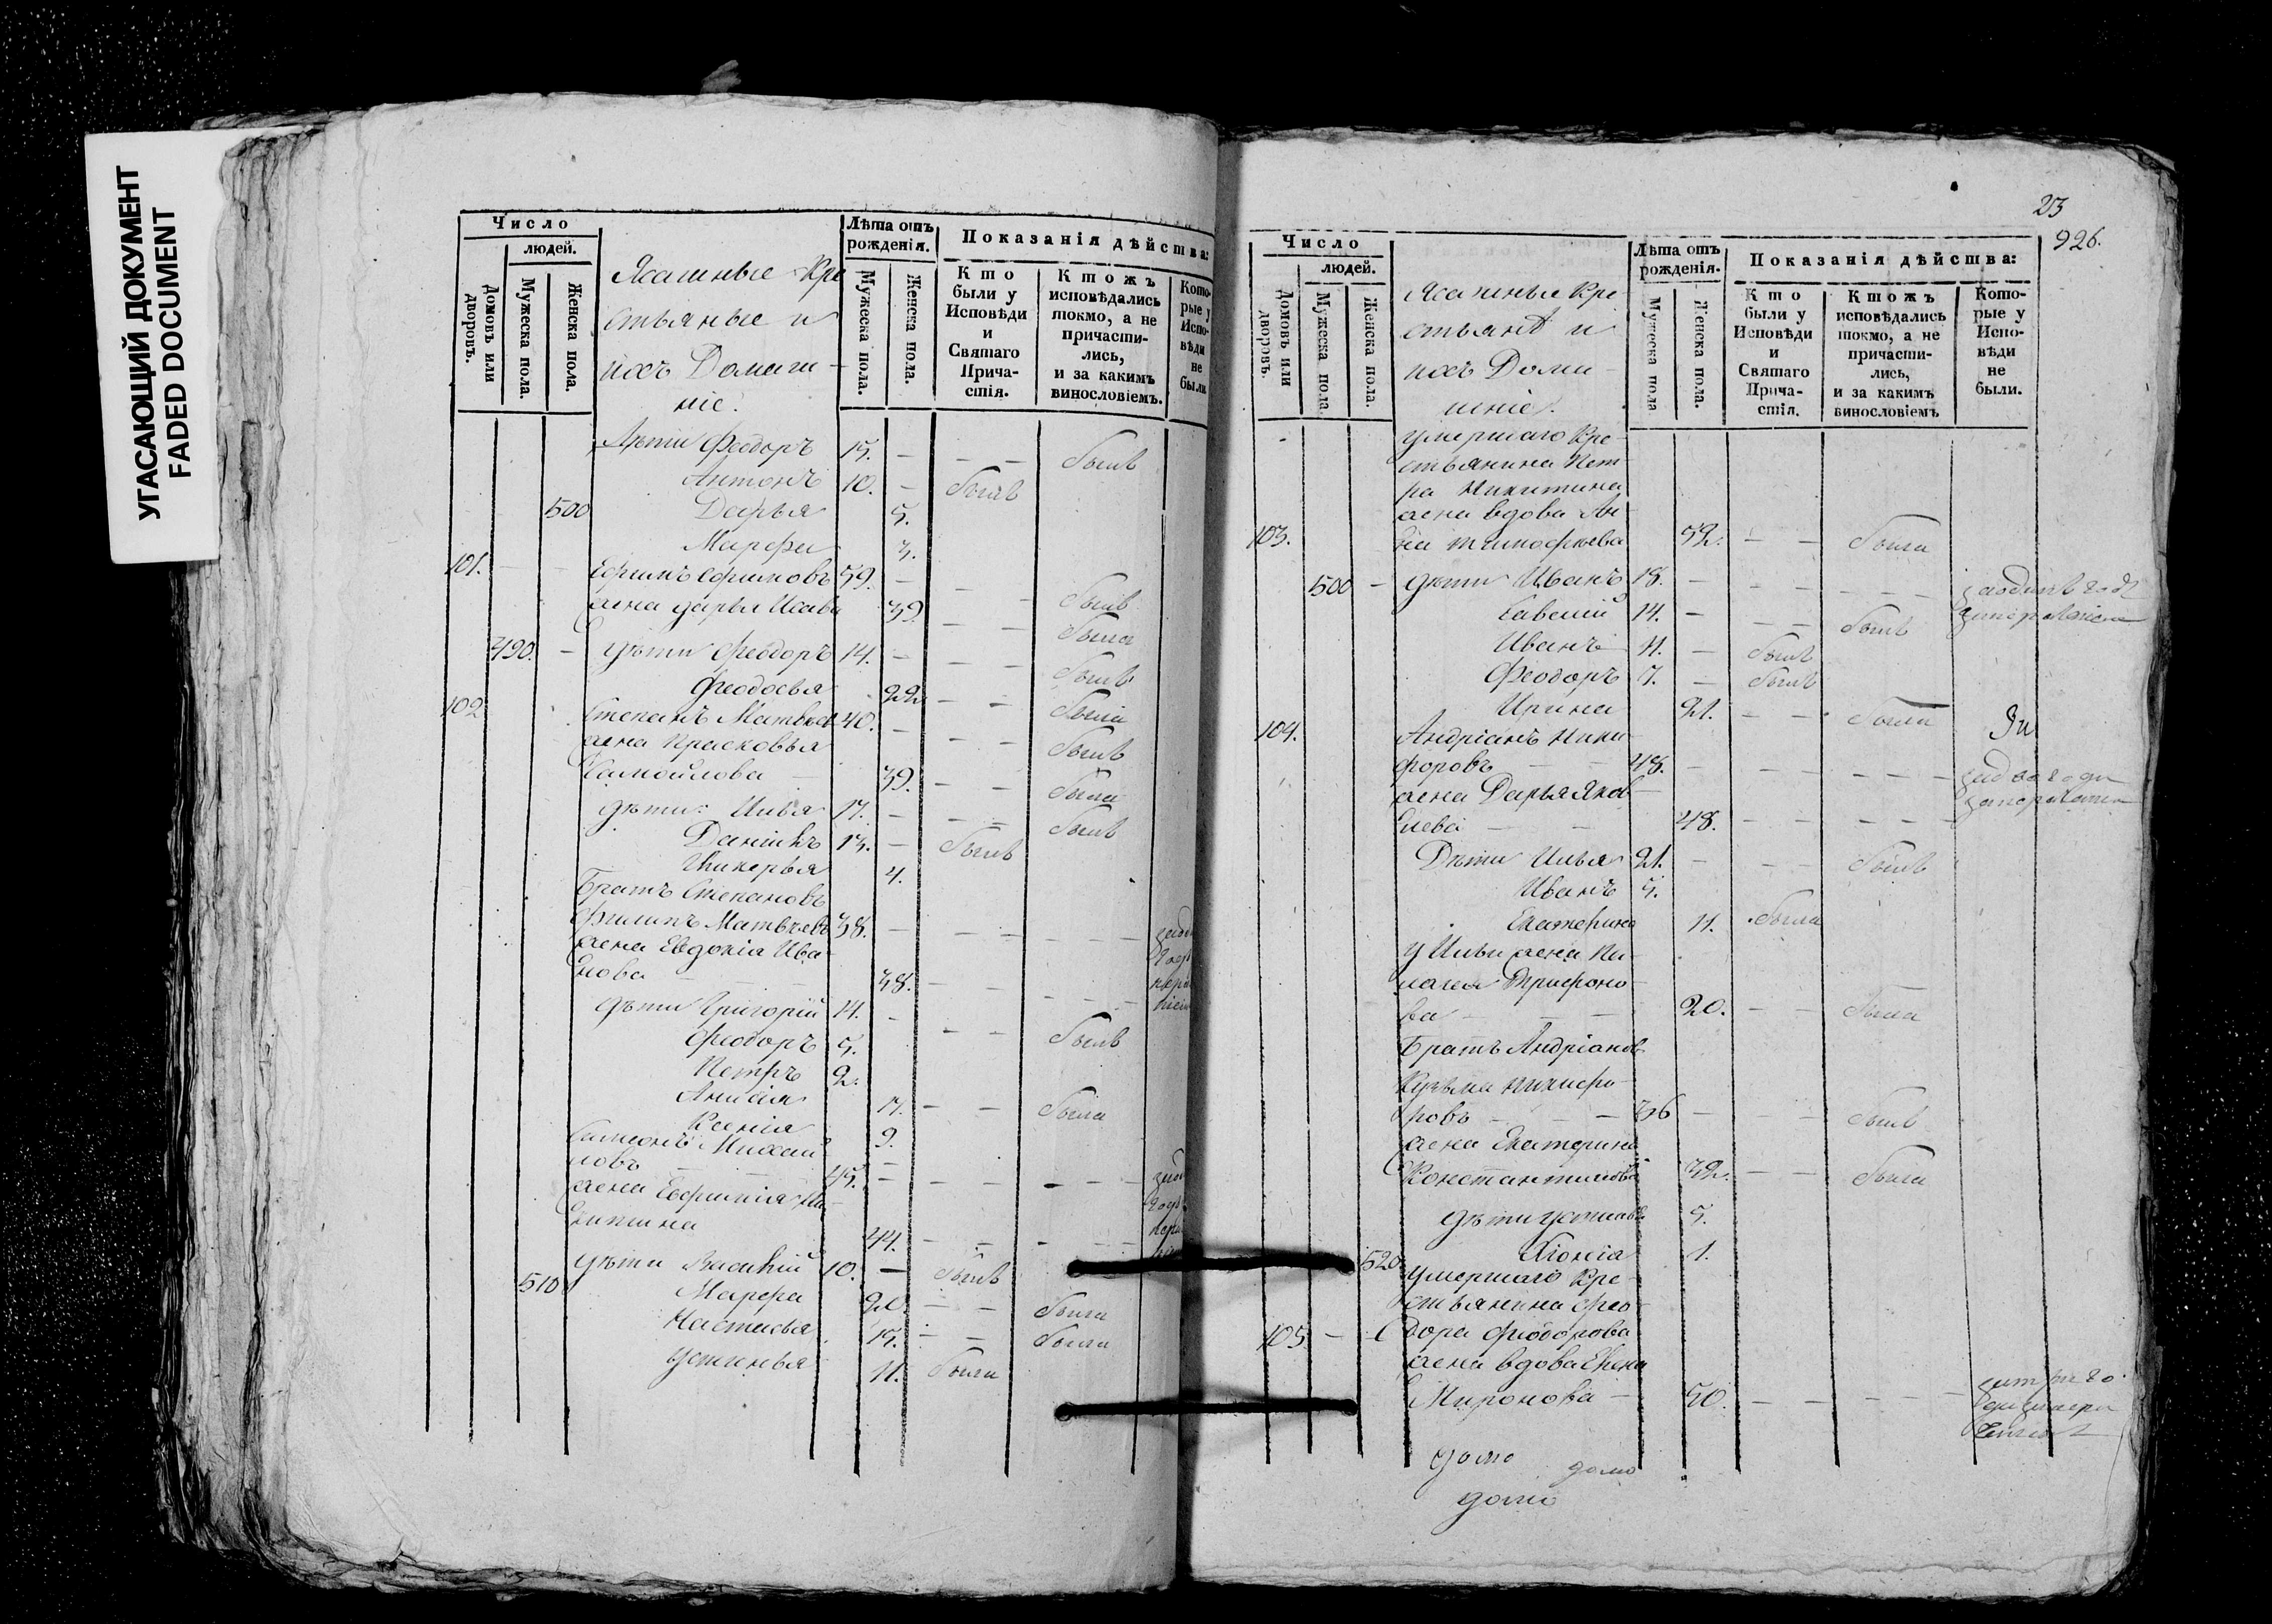 УГАСАЮЩИЙ ДОКУМЕНТ
FADED DOCUMENT
Число
людей.
Домовъ или дворовъ.
Мужеска пола.
Женска пола.
Ясашные Кре
стьяные и
ихъ Домаш-
ніе.
Лѣта отъ рожденія.
Мужеска пола.
Женска пола.
Показанія дѣйства:
Кто были у Исповѣди и Святаго Прича-стія.
Ктожъ исповѣдались токмо, а не причасти-лись, и за какимъ винословіемъ.
Кото-рые у Испо-вѣди не были.
Дѣти Феодоръ 15. — — — былъ
Антонъ 10. — былъ
500 Дарья 5.
Марфа 3.
101. — — Ефимъ Ефимовъ 59. — — — былъ
жена Дарья Исаева 39. — — была
490. — дѣти Феодоръ 14. — — — былъ
Феодосья 22. — — была
102 Степанъ Матвѣев 40. — — — былъ
жена Прасковья
Самойлова — 39. — — была
дѣти: Илья 17. — — — былъ
Даніилъ 13. — былъ
Гликерья 4.
Братъ Степановъ
Филипъ Матвѣевъ 38. — — — — —
жена Евдокія Ива-
нова — 38. — — — — —
дѣти Григорій 14. — — — былъ
Феодоръ 5.
Петръ 2.
Анисія 17. — — была
Ксенія 9.
Симеонъ Михай
ловъ — — 45. — — — — — —
жена Евфимія Ни-
китина 44. — — — —
дѣти Василій 10. — былъ
510 Марфа 20. — — была
Настасья 15. — — была
Устинья 11. была
23
926.
Число
людей.
Домовъ или дворовъ.
Мужеска пола
Женска пола.
Ясашныя Кре
стьянѣ и
ихъ Дома-
шніе.
Лѣта отъ рожденія.
Мужеска пола
Женска пола.
Показанія дѣйства:
Кто были у Исповѣди и Святаго Прича-стія.
Ктожъ исповѣдались токмо, а не причасти-лись, и за какимъ винословіемъ
Кото-рые у Испо-вѣди не были.
умершаго Кре-
стьянина Пет-
ра Никитина
жена вдова Ан-
103. Тимофѣева 52. — — была
500 — дѣти Иванъ 18. — — — — — заодинъ годъ
Савелій 14. — — — былъ
Иванъ 11. — былъ
Феодоръ 7. — былъ
Ирина 21. — — была
104. Андріанъ Ники-
форовъ — — 48. — — — — задва года
жена Дарья Яков-
лева — — 48. — — — —
Дѣти Илья 21. — — — былъ
Иванъ 5.
Екатерина 11. была
у Ильи жена Пе-
лагея Трифоно-
ва — — — 20. — — была
Братъ Андріановъ
Кузьма Никифо-
ровъ — — — 36 — — былъ
жена Екатерина
Константинова 32. — — была
дѣти 5.
520 Хіонія 1.
умершаго Кре-
стьянина Фео-
105 — — дора Феодорова
жена вдова Елена
Миронова — 50. — — — —
домо домо
домо